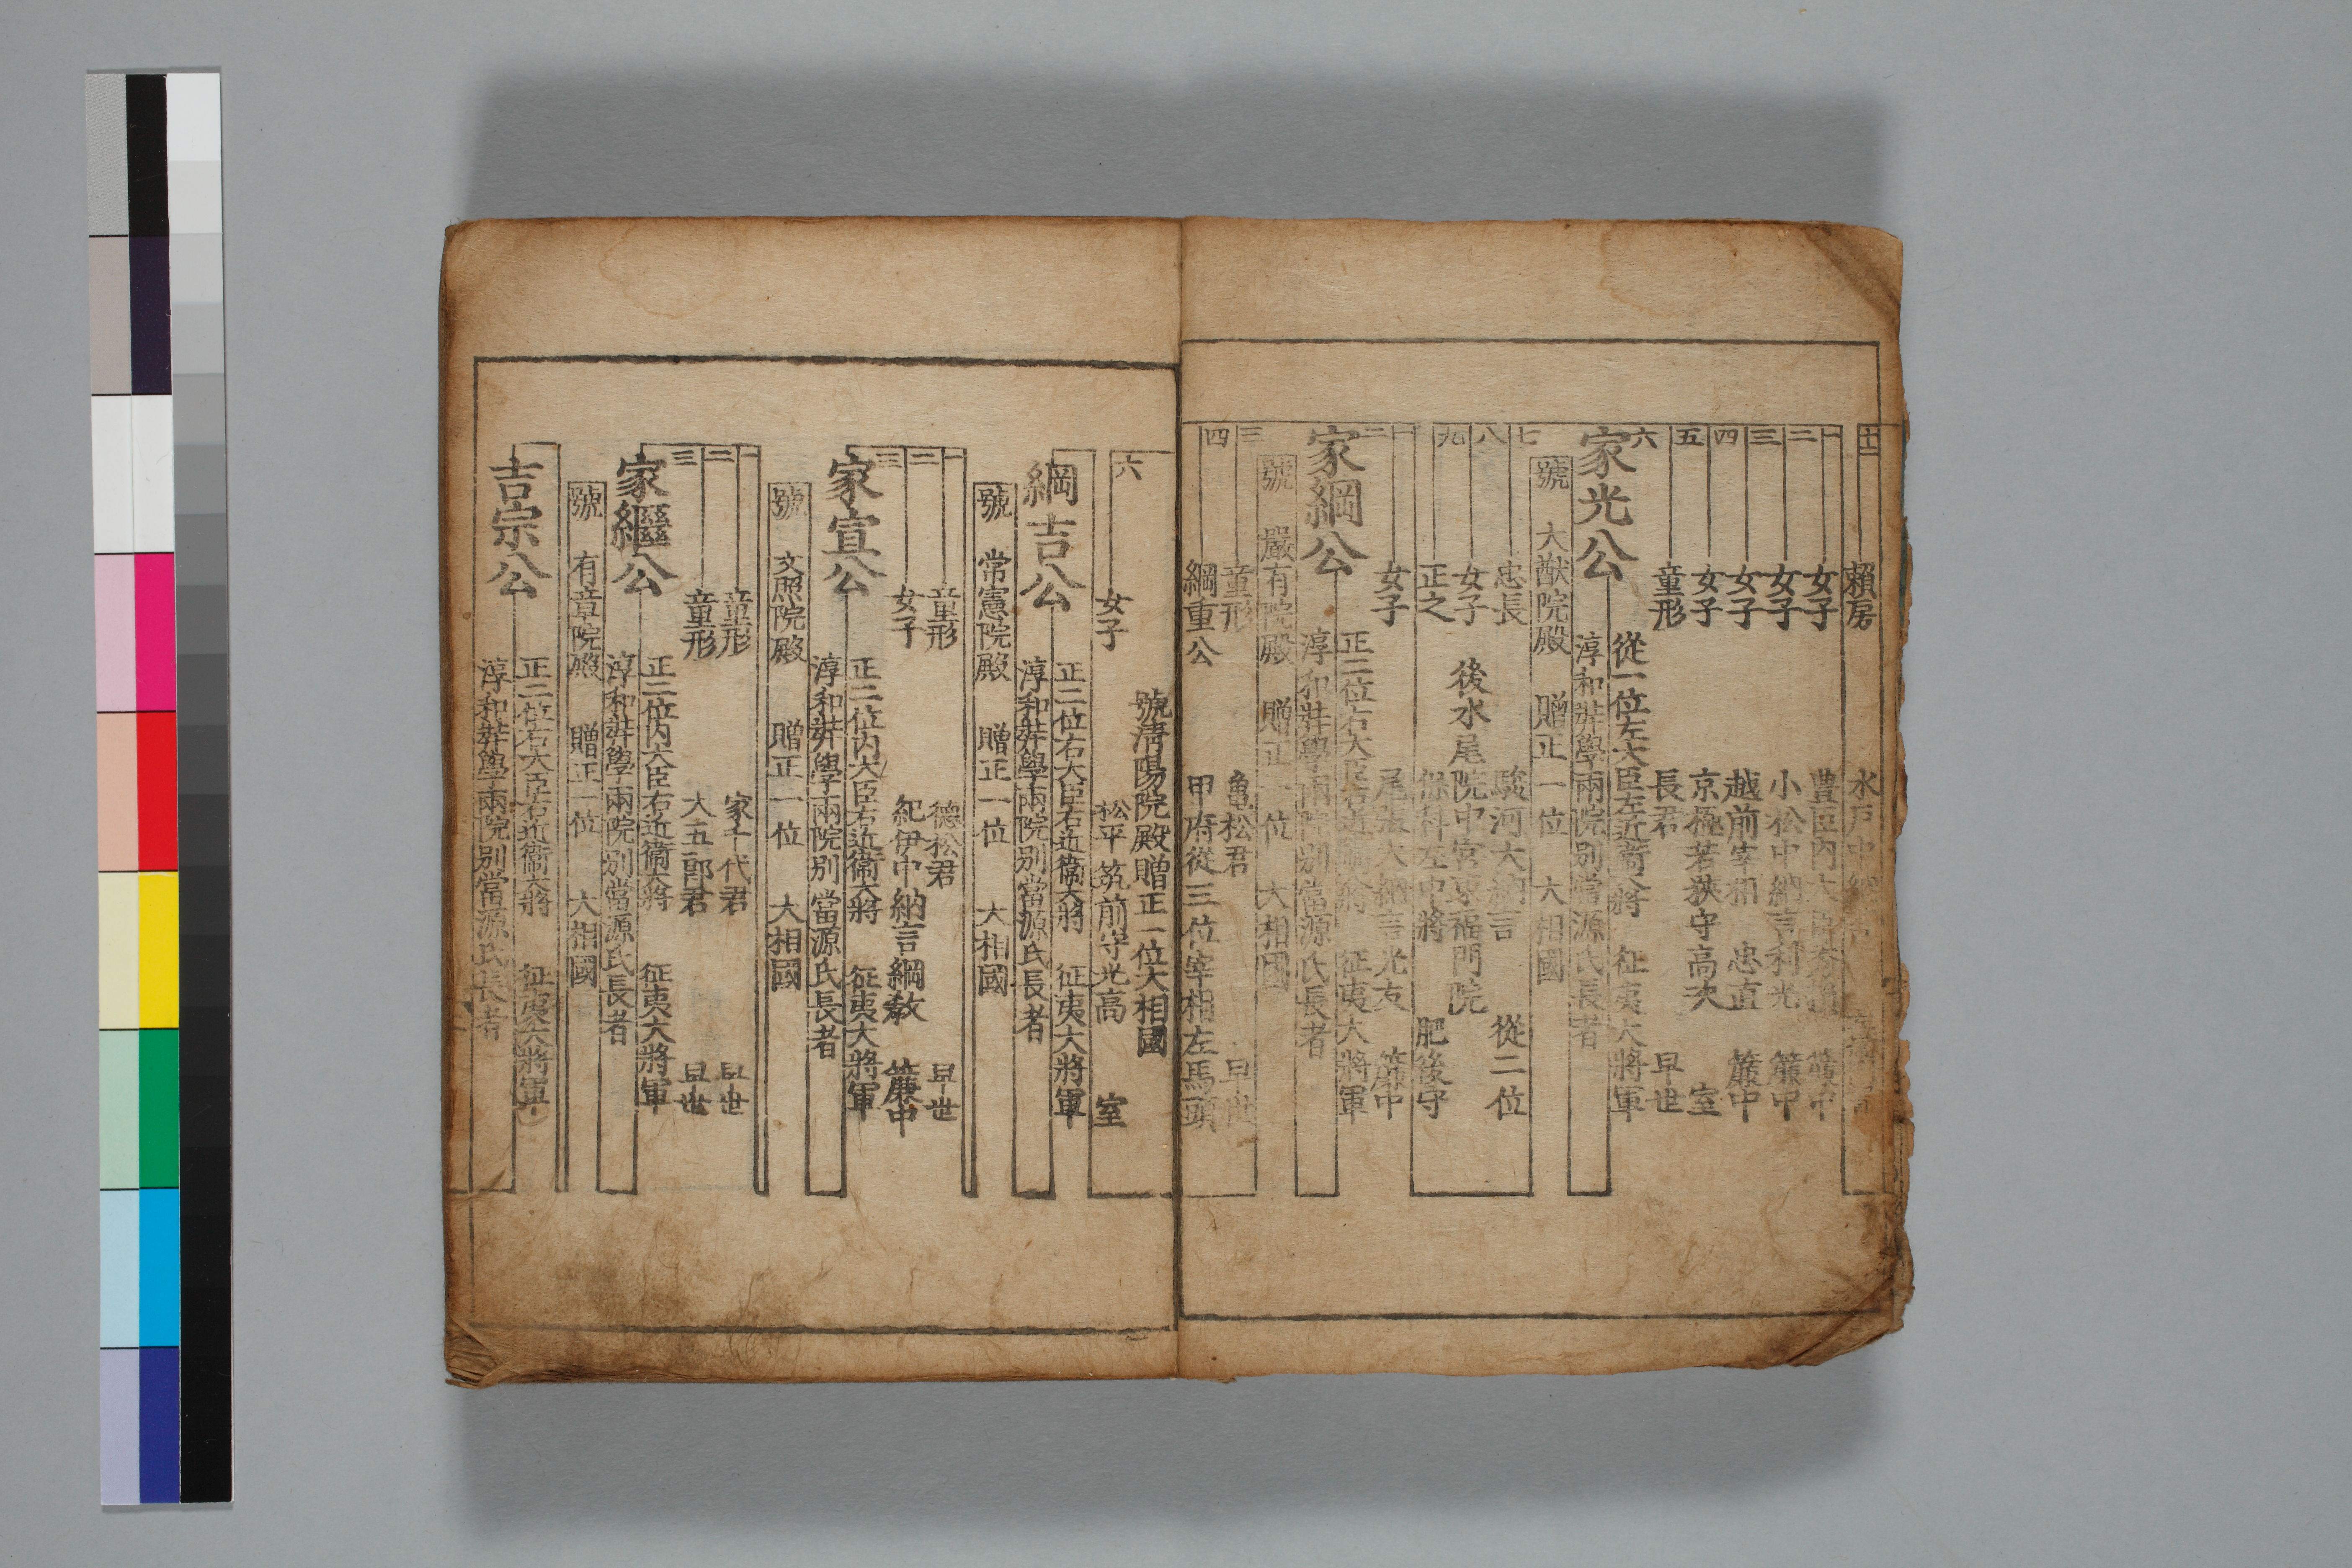 十一 賴房 水戸中納言
一 女子 豊臣内大臣秀頼 簾中
二 女子 小松中納言利光 簾中
三 女子 越前宰相 忠直 簾中
四 女子 京極若狹守高次 室
五 童形 長君 早世
六 家光公 從一位左大臣左近衞大將 征夷大將軍
淳和弉學兩院別當源氏長者
號 大猷院殿 贈正一位 大相國
七 忠長 駿河大納言 從二位
八 女子 後水尾院中宮東福門院
九 正之 保科左中將 肥後守
一 女子 尾張大納言光友 簾中
二 家綱公 正二位右大臣右近衞大將 征夷大將軍
淳和弉學兩院別當源氏長者
號 嚴有院殿 贈正一位 大相國
三 童形 亀松君 早世
四 綱重公 甲府從三位宰相左馬頭
號清陽院殿贈正一位大相國
六 女子 松平筑前守光高 室
綱吉公 正二位右大臣右近衞大將 征夷大將軍
淳和弉學兩院別當源氏長者
號 常憲院殿 贈正一位 大相國
一 童形 德松君 早世
二 女子 紀伊中納言綱教 簾中
三 家宣公 正二位内大臣右近衞大將 征夷大將軍
淳和弉學兩院別當源氏長者
號 文照院殿 贈正一位 大相國
一 童形 家千代君 早世
二 童形 大五郎君 早世
三 家繼公 正二位内大臣右近衞大將 征夷大將軍
淳和弉學兩院別當源氏長者
號 有章院殿 贈正一位 大相國
吉宗公 正二位右大臣右近衞大將 征夷大將軍
淳和弉學兩院別當源氏長者